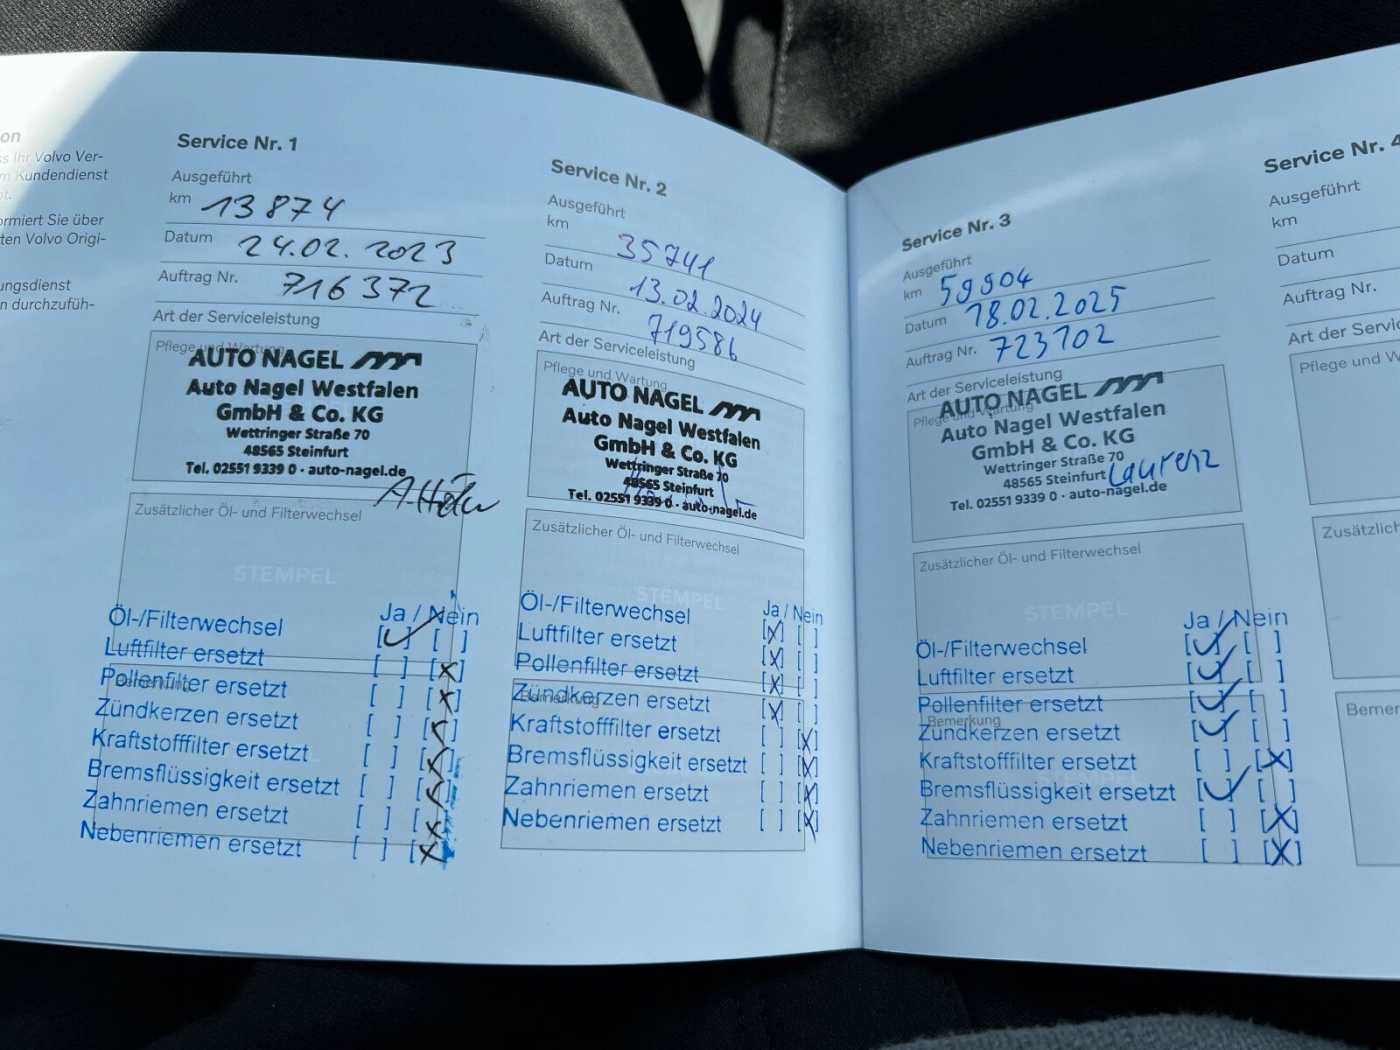 on
ss Ihr Volvo Ver-
m Kundendienst
ormiert Sie über
ten Volvo Origi-
ungsdienst
n durchzufüh-
Service Nr. 1
Ausgeführt
km 13874
Datum 24.02.2023
Auftrag Nr. 716372
Art der Serviceleistung
Pflege und Wartung
AUTO NAGEL
Auto Nagel Westfalen
GmbH & Co. KG
Wettringer Straße 70
48565 Steinfurt
Tel. 02551 9339 0 · auto-nagel.de
Zusätzlicher Öl- und Filterwechsel
STEMPEL
Ja / Nein
Öl-/Filterwechsel [✓] [ ]
Luftfilter ersetzt [ ] [x]
Pollenfilter ersetzt [ ] [x]
Bemerkung
Zündkerzen ersetzt [ ] [x]
Kraftstofffilter ersetzt [ ] [x]
Bremsflüssigkeit ersetzt [ ] [x]
Zahnriemen ersetzt [ ] [x]
Nebenriemen ersetzt [ ] [x]
Service Nr. 2
Ausgeführt
km 35741
Datum 13.02.2024
Auftrag Nr. 719586
Art der Serviceleistung
Pflege und Wartung
AUTO NAGEL
Auto Nagel Westfalen
GmbH & Co. KG
Wettringer Straße 70
48565 Steinfurt
Tel. 02551 9339 0 · auto-nagel.de
Zusätzlicher Öl- und Filterwechsel
STEMPEL
Ja / Nein
Öl-/Filterwechsel [x] [ ]
Luftfilter ersetzt [x] [ ]
Pollenfilter ersetzt [x] [ ]
Bemerkung
Zündkerzen ersetzt [x] [ ]
Kraftstofffilter ersetzt [ ] [x]
Bremsflüssigkeit ersetzt [ ] [x]
Zahnriemen ersetzt [ ] [x]
Nebenriemen ersetzt [ ] [x]
Service Nr. 3
Ausgeführt
km 59904
Datum 18.02.2025
Auftrag Nr. 723702
Art der Serviceleistung
Pflege und Wartung
AUTO NAGEL
Auto Nagel Westfalen
GmbH & Co. KG
Wettringer Straße 70
48565 Steinfurt Laurenz
Tel. 02551 9339 0 · auto-nagel.de
Zusätzlicher Öl- und Filterwechsel
STEMPEL
Ja / Nein
Öl-/Filterwechsel [✓] [ ]
Luftfilter ersetzt [✓] [ ]
Pollenfilter ersetzt [✓] [ ]
Bemerkung
Zündkerzen ersetzt [✓] [ ]
Kraftstofffilter ersetzt [ ] [x]
Bremsflüssigkeit ersetzt [✓] [ ]
Zahnriemen ersetzt [ ] [x]
Nebenriemen ersetzt [ ] [x]
Service Nr. 4
Ausgeführt
km
Datum
Auftrag Nr.
Art der Servic
Pflege und W
Zusätzlich
Bemer